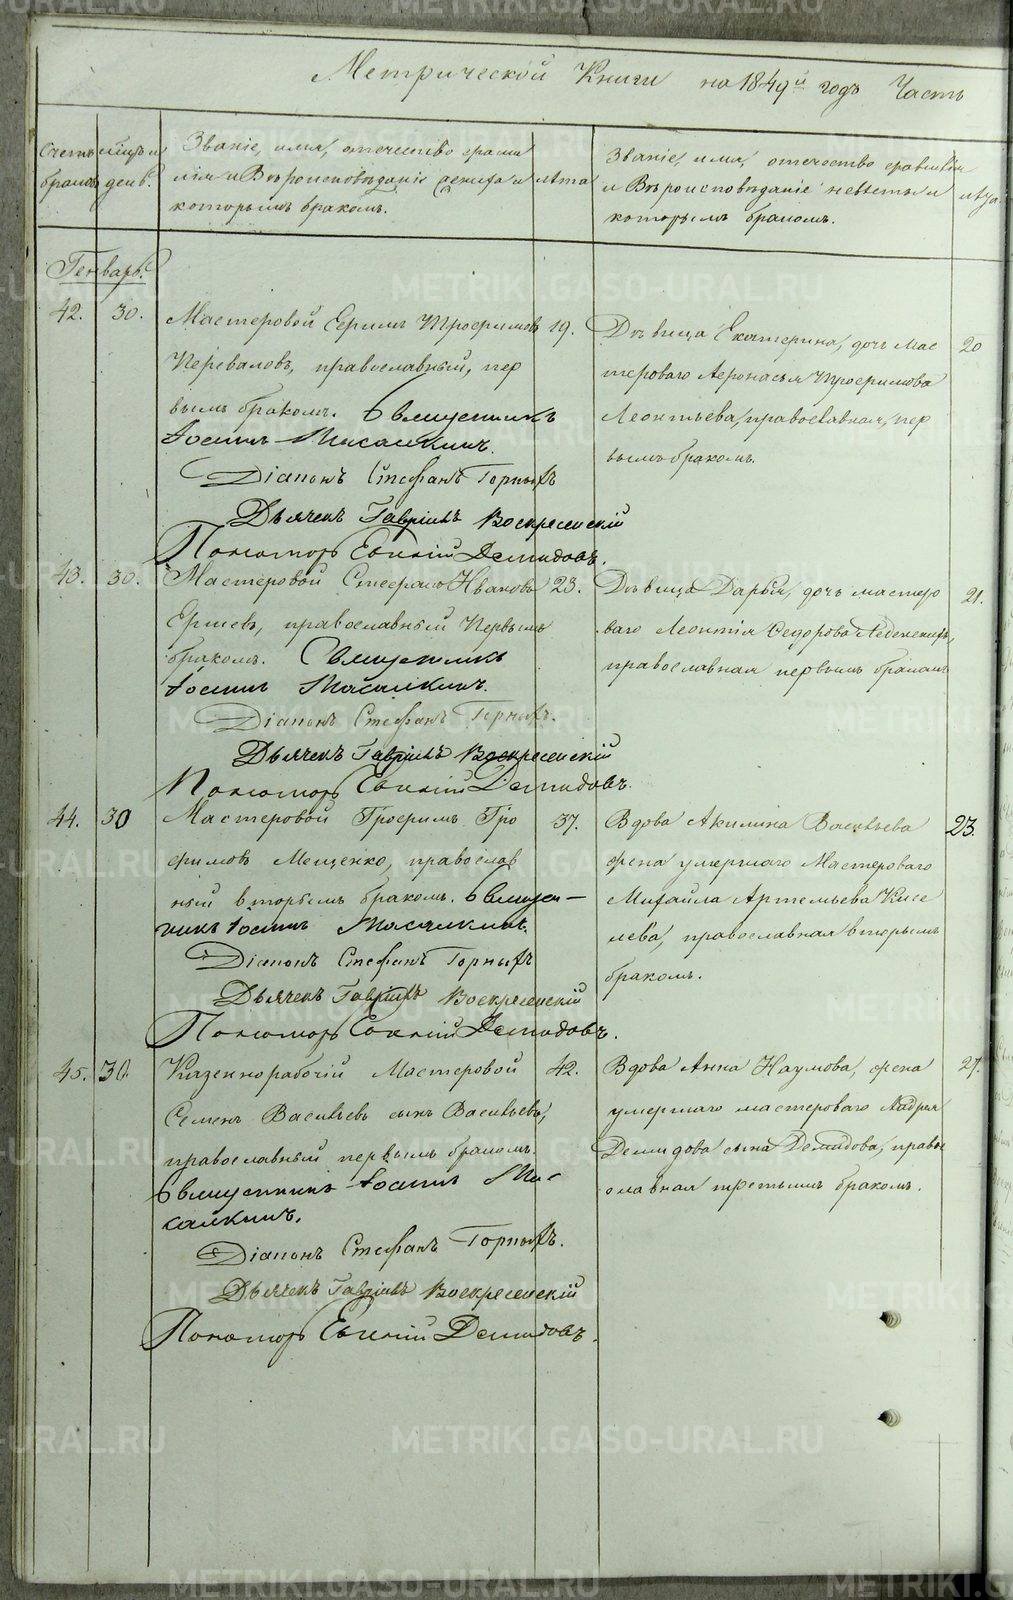 Метрической Книги на 1849й годъ Часть
Счетъ браковъ
мѣсяцъ и день.
Званіе, имя, отечество, фами
лія и Вѣроисповѣданіе жениха и
которымъ бракомъ.
лѣта
Званіе, имя, отечество фамилія
и Вѣроисповѣданіе невѣсты и
которымъ бракомъ.
лѣта
Генварь.
42. 30.
Мастеровой Ефимъ Трофимовъ 19.
Переваловъ, православный, пер
вымъ бракомъ. Священникъ
Іоаннъ Масалкинъ.
Діаконъ Стефанъ Горныхъ
Дьячекъ Гавріилъ Воскресенскій
Пономарь Евгений Демидовъ.
Дѣвица Екатерина, дочь Мас 20
тероваго Афонасья Трофимова
Леонтьева, православная, пер
вымъ бракомъ.
43. 30.
Мастеровой Стефанъ Ивановъ 23.
Ершевъ, православный Первымъ
бракомъ. Священникъ
Іоаннъ Масалкинъ.
Діаконъ Стефанъ Горныхъ.
Дьячекъ Гавріилъ Воскресенскій
Пономарь Евгеній Демидовъ.
Дѣвица Дарья, дочь мастеро 21.
ваго Леонтія Федорова
православная первымъ бракомъ
44. 30
Мастеровой Трофимъ Тро 37.
фимовъ Мещенко, православ
ный вторымъ бракомъ. Священ-
никъ Іоаннъ Масалкинъ.
Діаконъ Стефанъ Горныхъ
Дьячекъ Гавріилъ Воскресенскій
Пономарь Евгеній Демидовъ.
Вдова Акилина Васильева 23.
жена умершаго Мастероваго
Михайла Артемьева Кисе
лева, православная вторымъ
бракомъ.
45. 30.
Казеннорабочій Мастеровой 42.
Семенъ Васильевъ сынъ Васильевъ,
православный первымъ бракомъ.
Священникъ Іоаннъ Ма-
салкинъ.
Діаконъ Стефанъ Горныхъ.
Дьячекъ Гавріилъ Воскресенскій
Пономарь Евгеній Демидовъ.
Вдова Анна Наумова, жена 27.
умершаго мастероваго Андрея
Демидова сына Демидова, право
славная третьимъ бракомъ.
METRIKI.GASO-URAL.RU